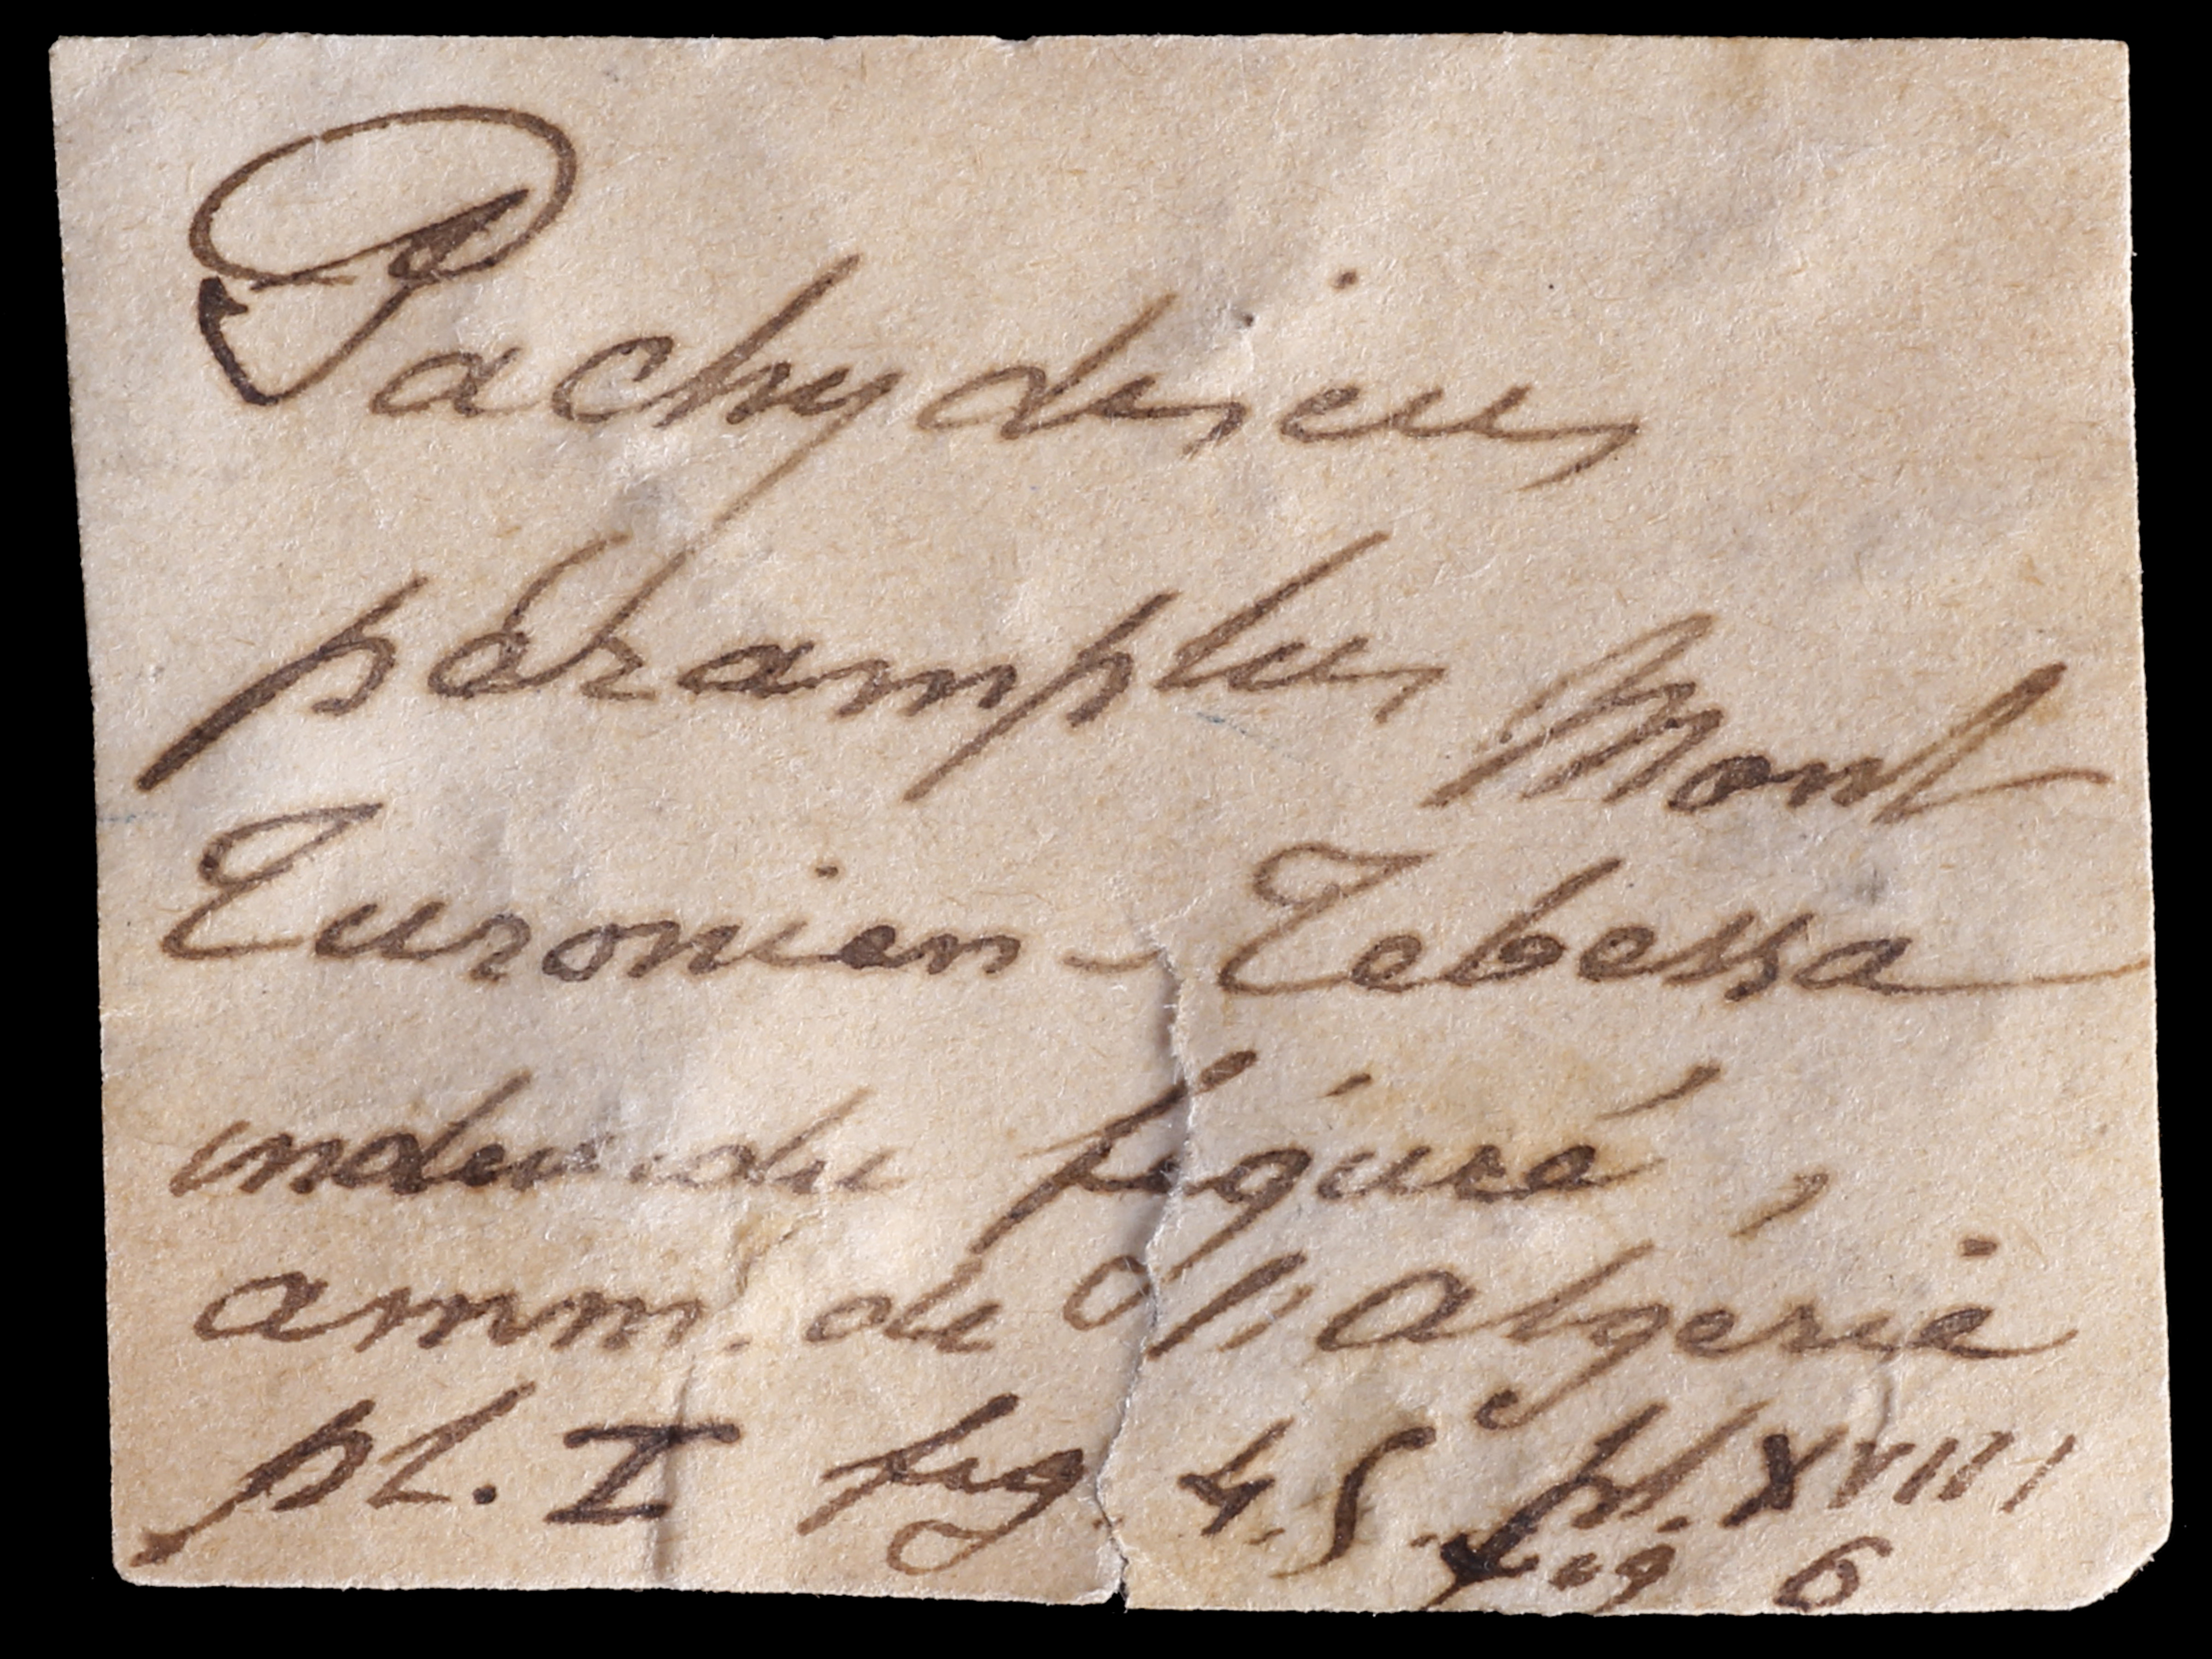 Pachydiscus
peramplus Mont
Turonien - Tebessa
individu figuré,
amm. de l'Algérie
pl. I fig. 4. 5. pl. XVIII
fig. 6